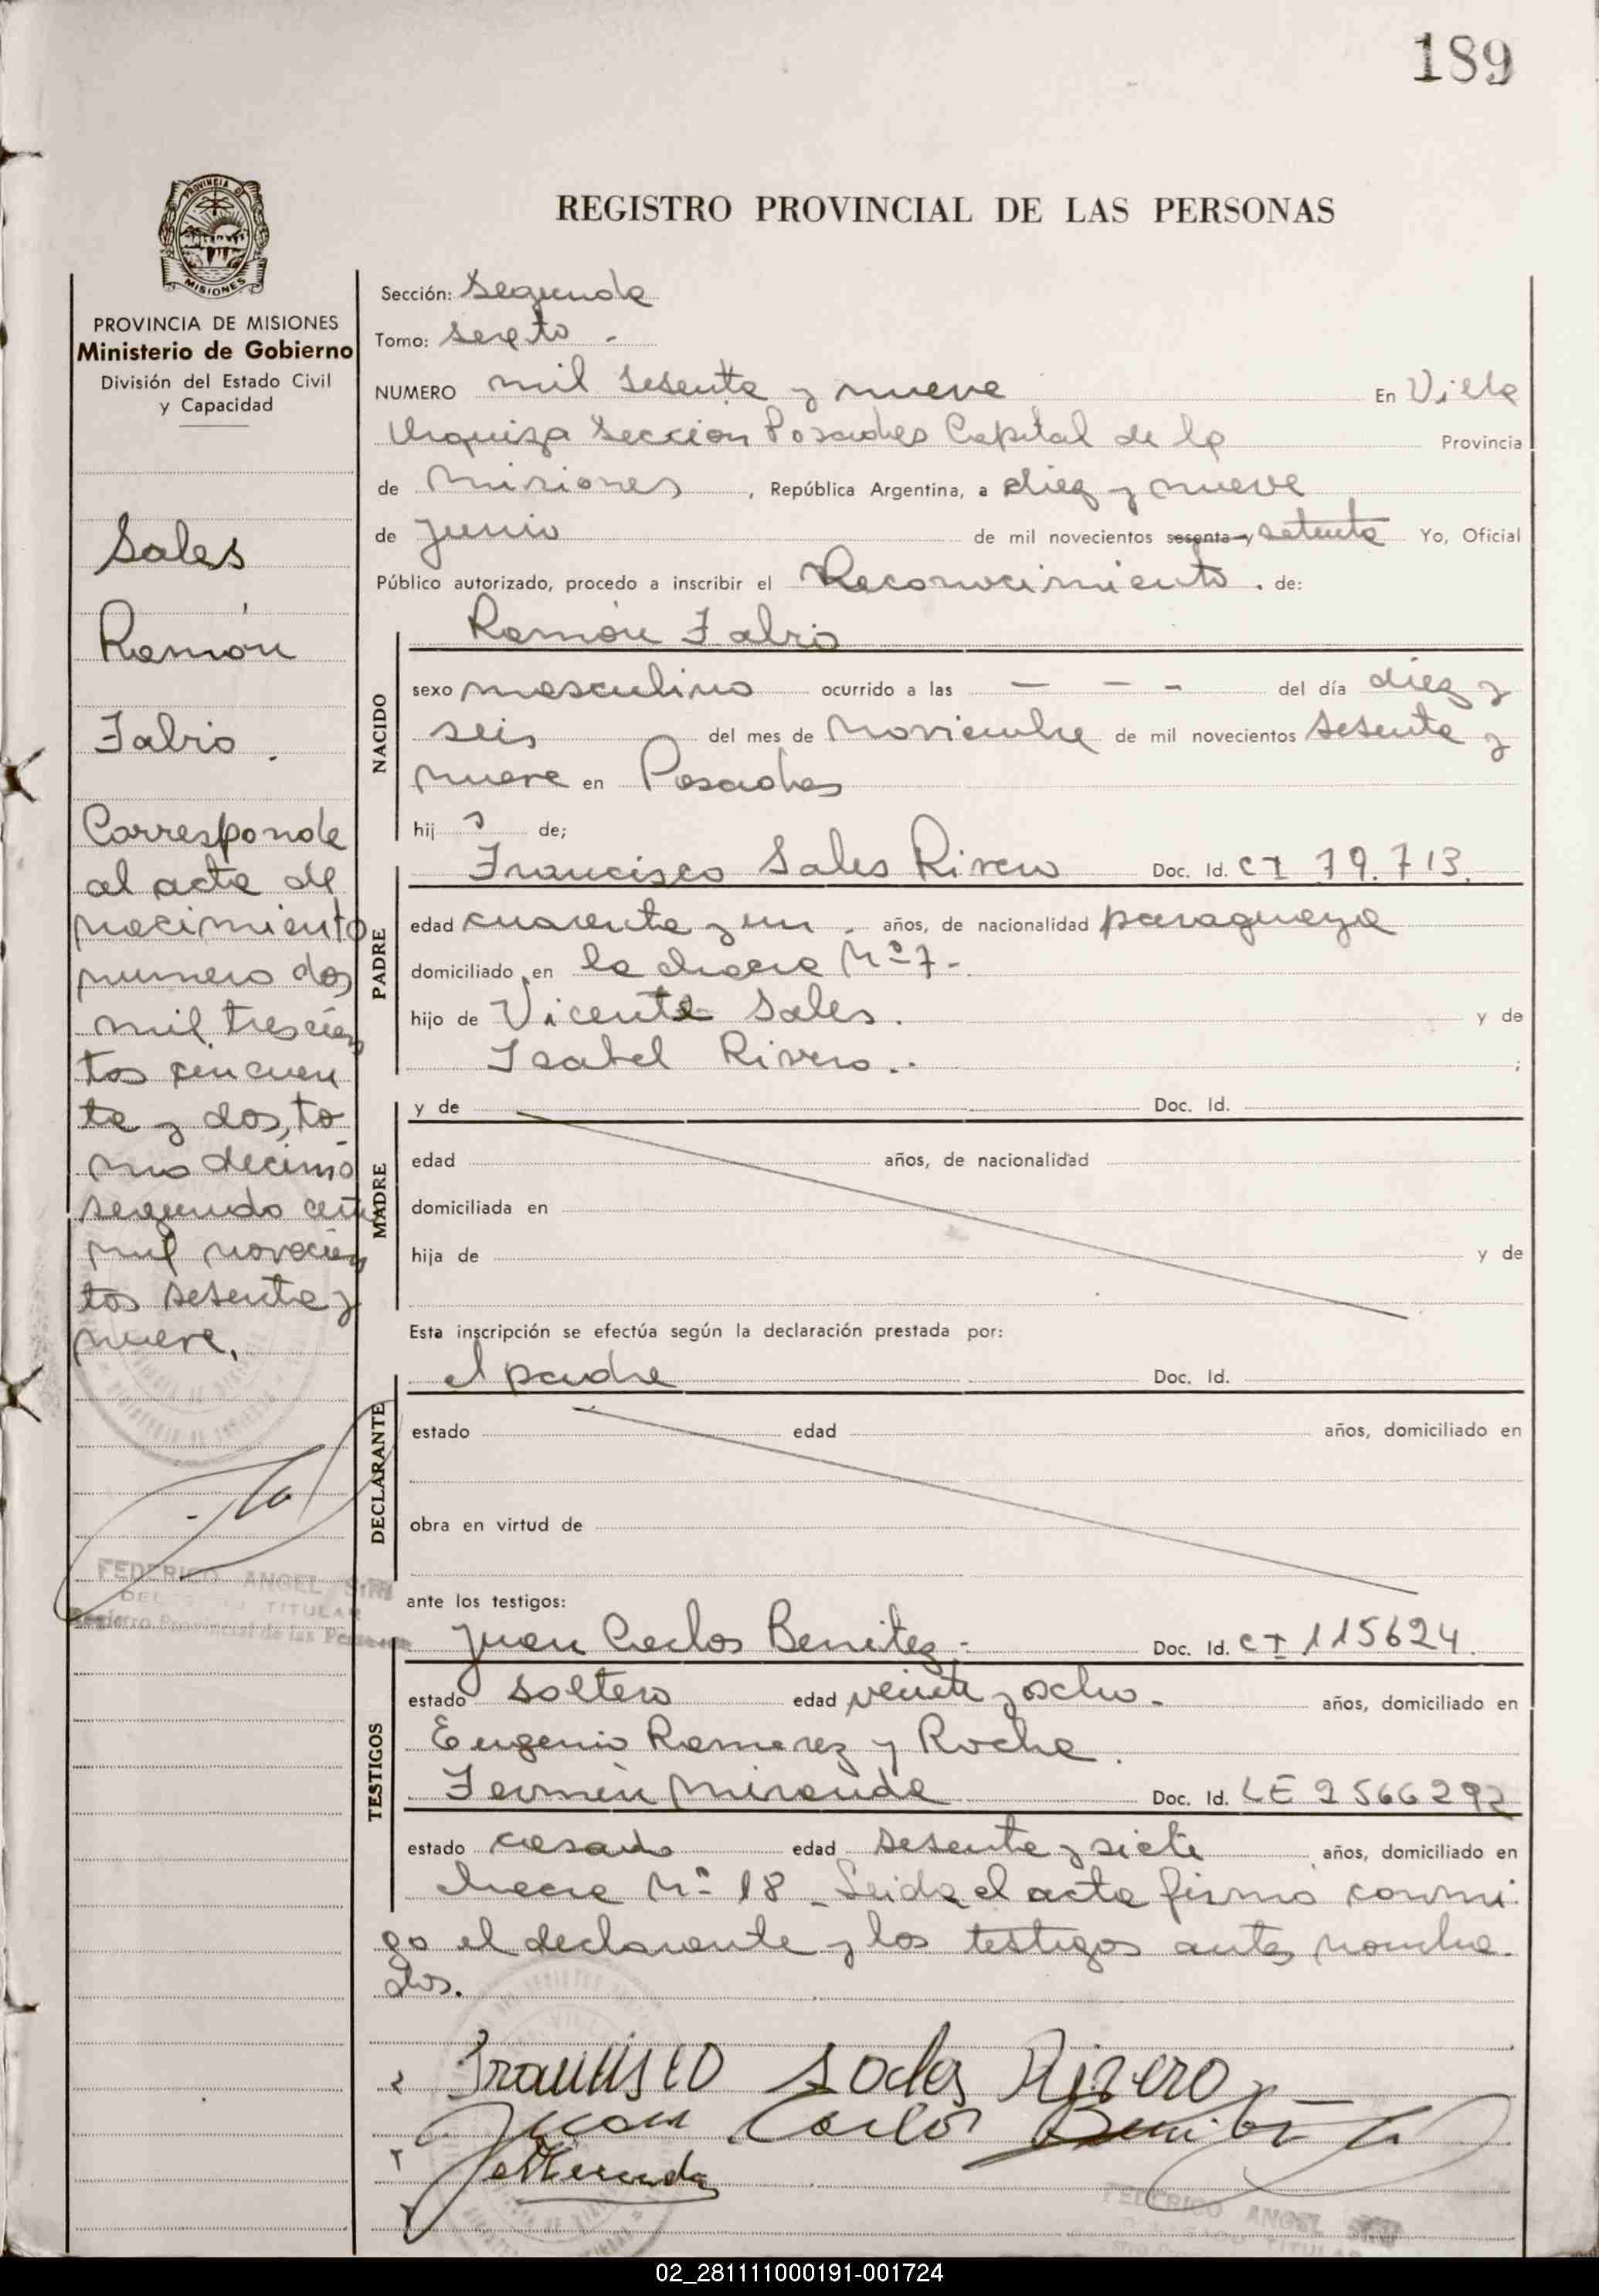 189
REGISTRO PROVINCIAL DE LAS PERSONAS
PROVINCIA DE
MISIONES
PROVINCIA DE MISIONES
Ministerio de Gobierno
División del Estado Civil
y Capacidad
Sales
Ramón
Fabio.
Corresponde
al acta de
nacimiento
numero dos
mil trescien
tos cincuen
ta y dos, to
mo decimo
segundo año
mil novecien
tos sesenta y
nueve.
FEDERICO ANGEL
TITULAR
Registro Provincial de las Personas
Sección: Segunda
Tomo: sexto -
NUMERO mil sesenta y nueve En Villa
Urquiza Sección Posadas Capital de la Provincia
de Misiones, República Argentina, a diez y nueve
de Junio de mil novecientos sesenta y setenta Yo, Oficial
Público autorizado, procedo a inscribir el Reconocimiento. de:
Ramón Fabio
NACIDO
sexo masculino ocurrido a las — — - del día diez y
seis del mes de Noviembre de mil novecientos sesenta y
nueve en Posadas
hij o de;
PADRE
Francisco Sales Rivero Doc. Id. CI 79.713.
edad cuarenta y un. años, de nacionalidad paraguaya
domiciliado en la chacra Nº 7-
hijo de Vicente Sales. y de
Isabel Rivero.- ;
MADRE
y de Doc. Id.
edad años, de nacionalidad
domiciliada en
hija de y de
Esta inscripción se efectúa según la declaración prestada por:
DECLARANTE
el padre Doc. Id.
estado edad años, domiciliado en
obra en virtud de
ante los testigos:
TESTIGOS
Juan Carlos Benitez- Doc. Id. CI 115624.
estado soltero edad veinte y ocho- años, domiciliado en
Eugenio Ramerez y Roche.
Fermin Miranda Doc. Id. LE 2566292
estado casado edad sesenta y siete años, domiciliado en
chacra Nº 18 - Leida el acta firmo conmi
go el declarante y los testigos antes nombra
dos.
Francisco Sales Rivero
Juan Carlos Benitez
FEDERICO ANGEL
TITULAR
02_281111000191-001724